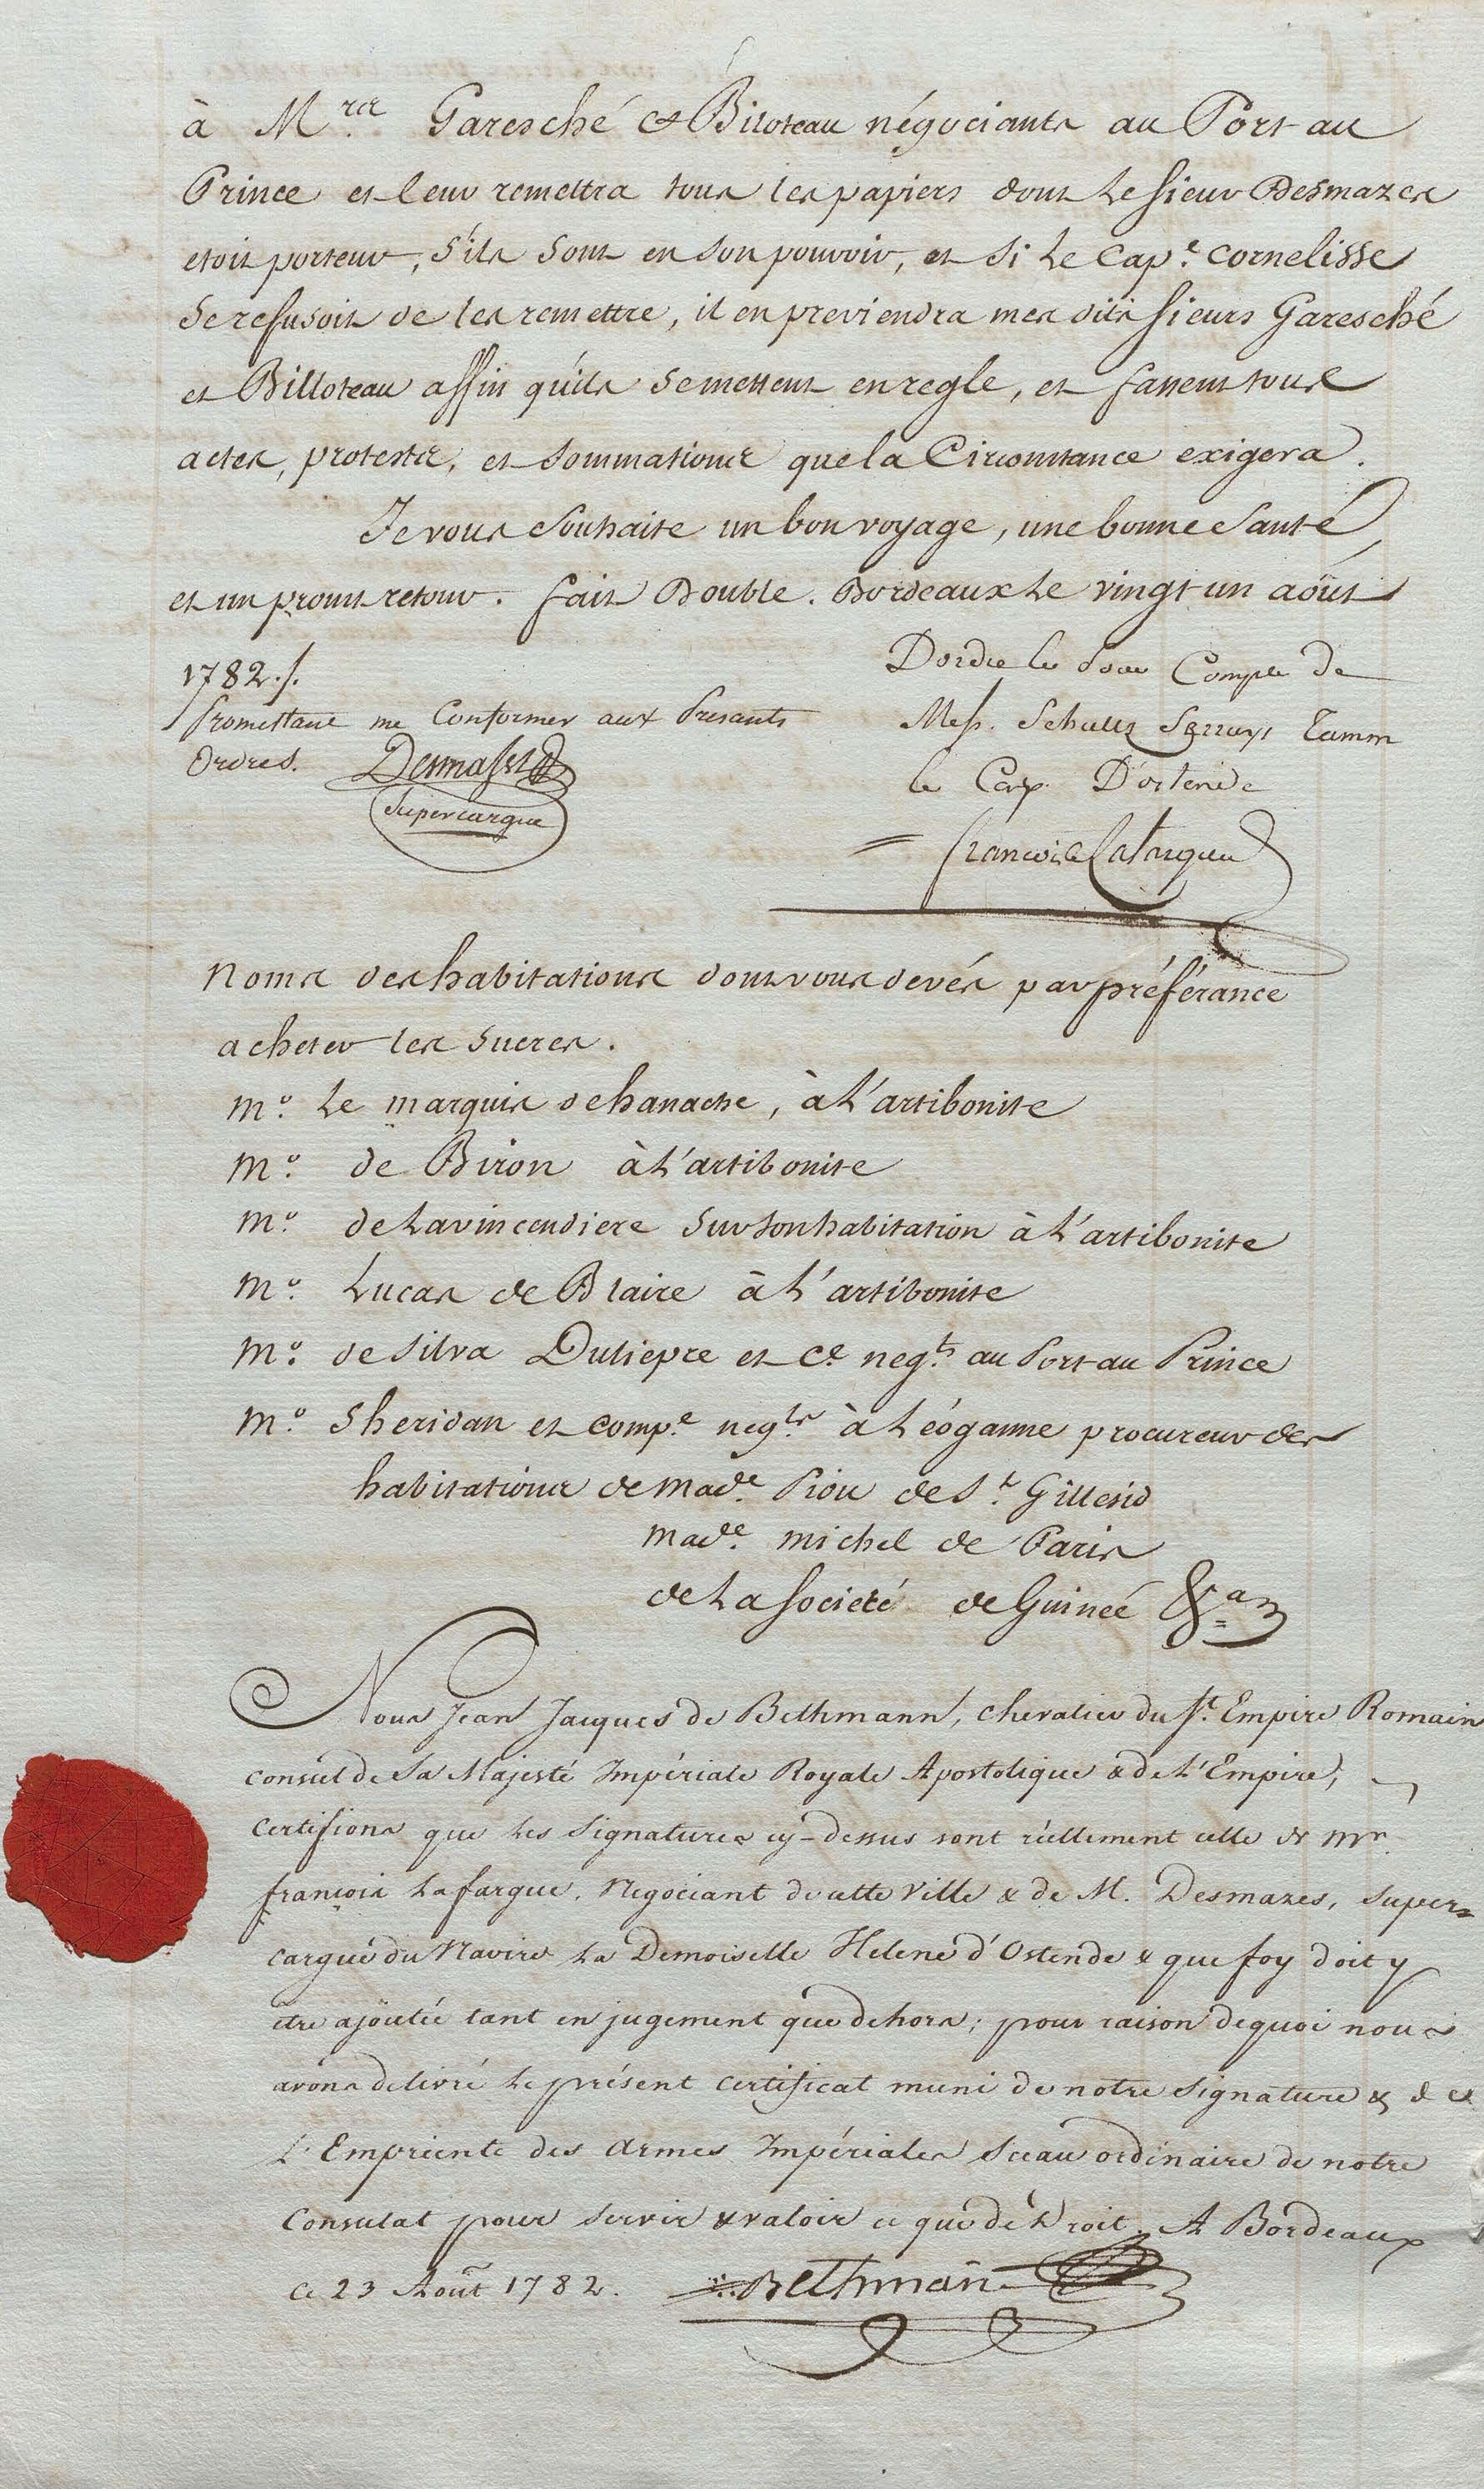 à M.rs Garesché & Biloteau négociants au Port au
Prince et leur remettra tous les papiers dont Le sieur Desmazes
etoit porteur, s'ils sont en son pouvoir, et si Le Cap.e Cornelisse
Se refusoit de les remettre, il en previendra mes dits sieurs Garesché
et Billoteau affin qu'ils se mettent en regle, et fassent tous
actes, protests, et sommations que la Circonstance exigera.
Je vous souhaite un bon voyage, une bonne santé,
et un promt retour. fait Double. Bordeaux Le vingt un aöut
1782./.
Promettant me Conformer aux Presants
Ordres. Desmasses
Supercargue
Dordre le pour Compte de
Mess. Schultz Serruys Tamm
le Corp. D'ostende
francois Lafargue
Noms des habitations dont vous devés par préférance
acheter les sucres.
M.o Le marquis de hanache, à L'artibonite
M.o de Biron à L'artibonite
M.o de Lavincendiere Sur son habitation à L'artibonite
M.o Lucas de Blaire à L'artibonite
M.o de silva Duliepre et C.e neg.ts au Port au Prince
M.o Sheridan et Comp.e neg.ts à Léoganne procureur des
habitations de Mad.e Piou de S.t Gilles
Mad.e Michel de Paris
de La Societé de Guineé &.a
Nous Jean Jacques de Bethmann, Chevalier du S.t Empire Romain
Consul de Sa Majesté Impériale Royale Apostolique & de L'Empire,
Certifions que Les Signatures cy-dessus sont réellement celle de Mr.
françois Lafargue, Negociant de cette Ville & de M. Desmazes, super=
cargue du Navire La Demoiselle Helene d'Ostende & que foy doit y
etre ajöutée tant en jugement que dehors; pour raison de quoi nous
avons delivré Le présent certificat muni de notre Signature & de
L'Empreinte des Armes Impériales Sceau ordinaire de notre
Consulat pour servir & valoir ce que de Droit. A Bordeaux
Ce 23 Août 1782. Bethmañ